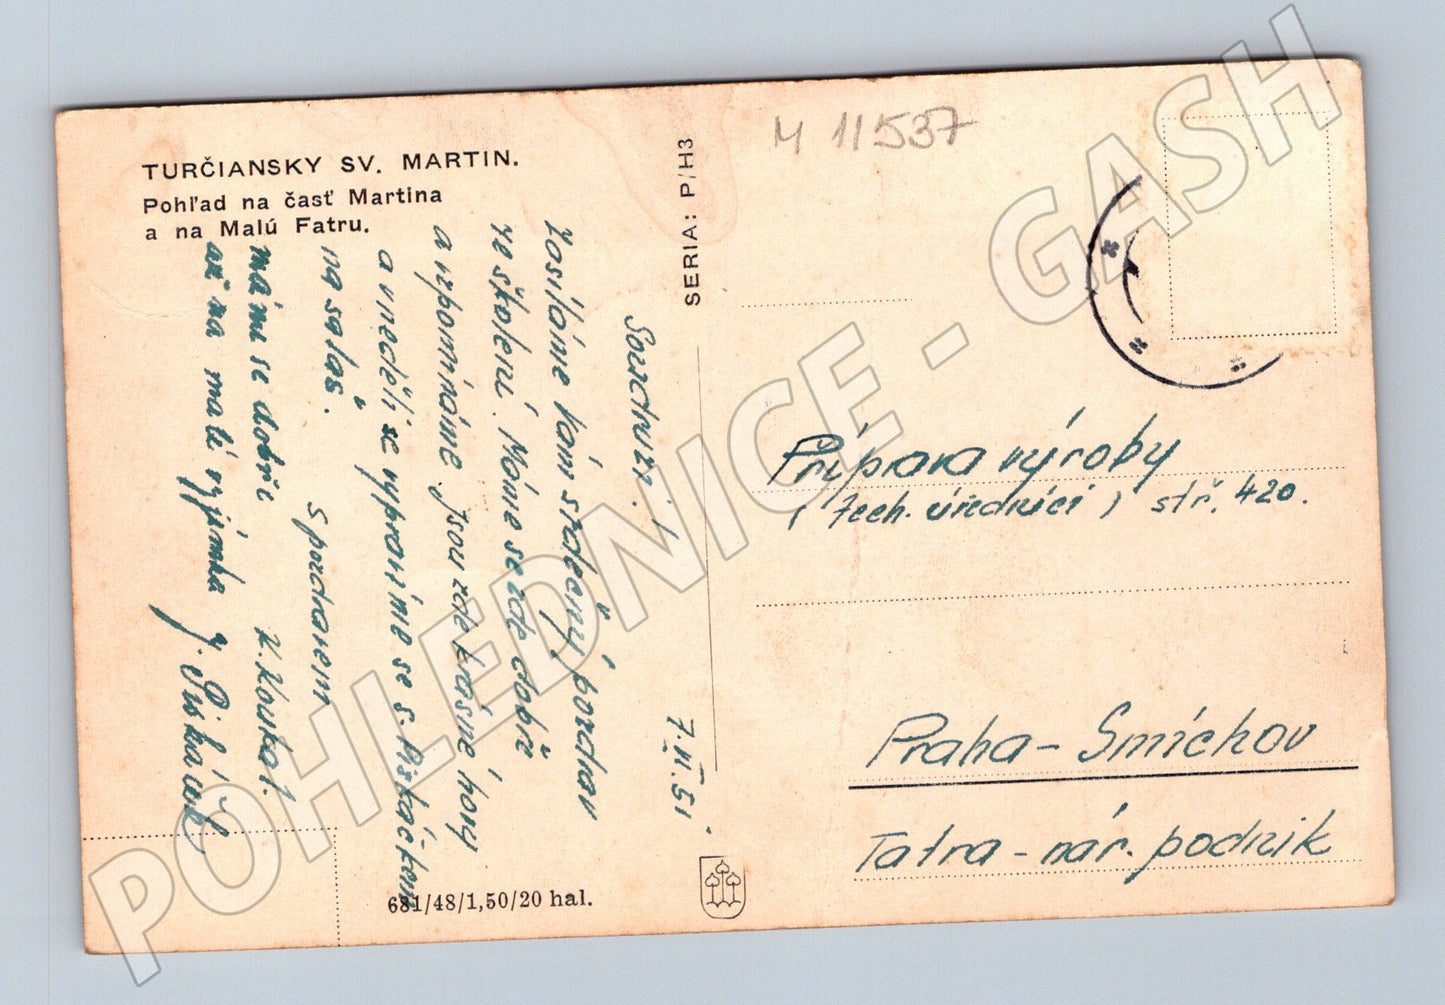 TURČIANSKY SV. MARTIN.
Pohľad na časť Martina
a na Malú Fatru.
M 11537
SERIA: P/H3
Soudruzi!
Zasíláme Vám srdečný pozdrav
ze školení. Máme se zde dobře
a vzpomínáme. Jsou zde krásné hory
a v neděli se vypravíme se s. Piskáčkem
na salaš.
S pozdravem
K. Koukal.
máme se dobře
až na malé výjimky J. Piskáček
7.VI.51
Příprava výroby
(tech. úředníci) stř. 420.
Praha - Smíchov
Tatra - nár. podnik
681/48/1,50/20 hal.
POHLEDNICE - GASH